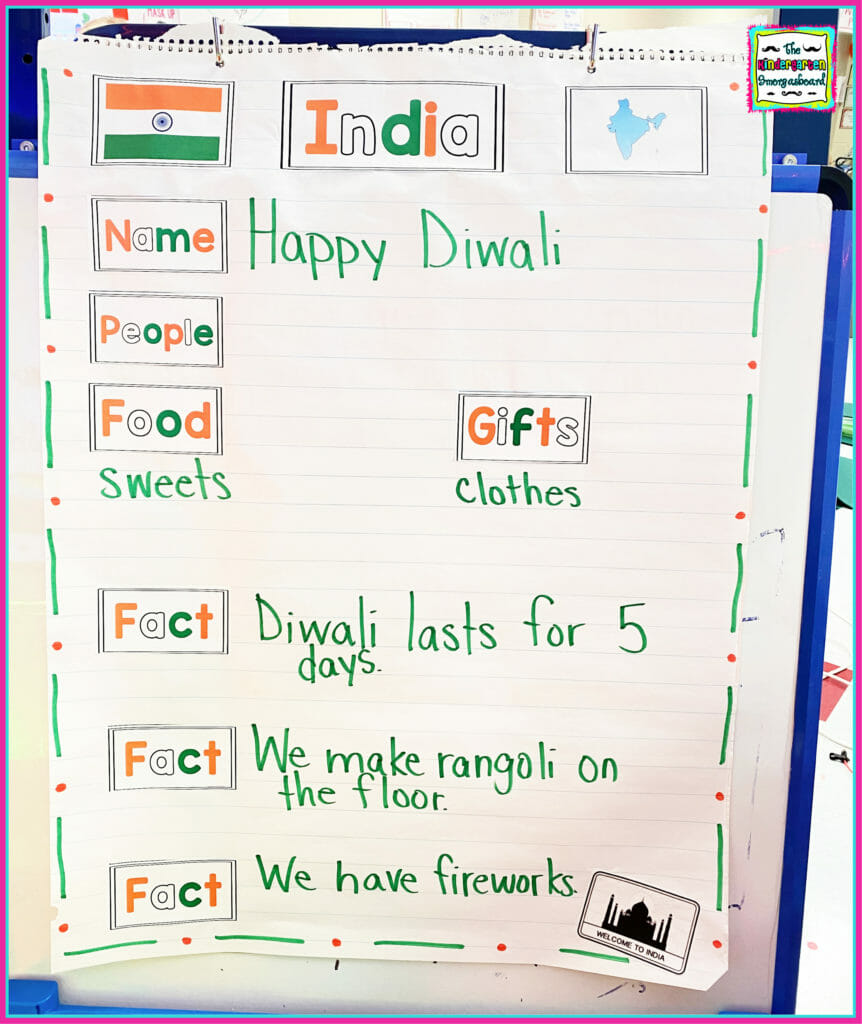 The
Kindergarten
Smorgasboard
India
Name Happy Diwali
People
Food Gifts
sweets clothes
Fact Diwali lasts for 5
days.
Fact We make rangoli on
the floor.
Fact We have fireworks.
WELCOME TO INDIA